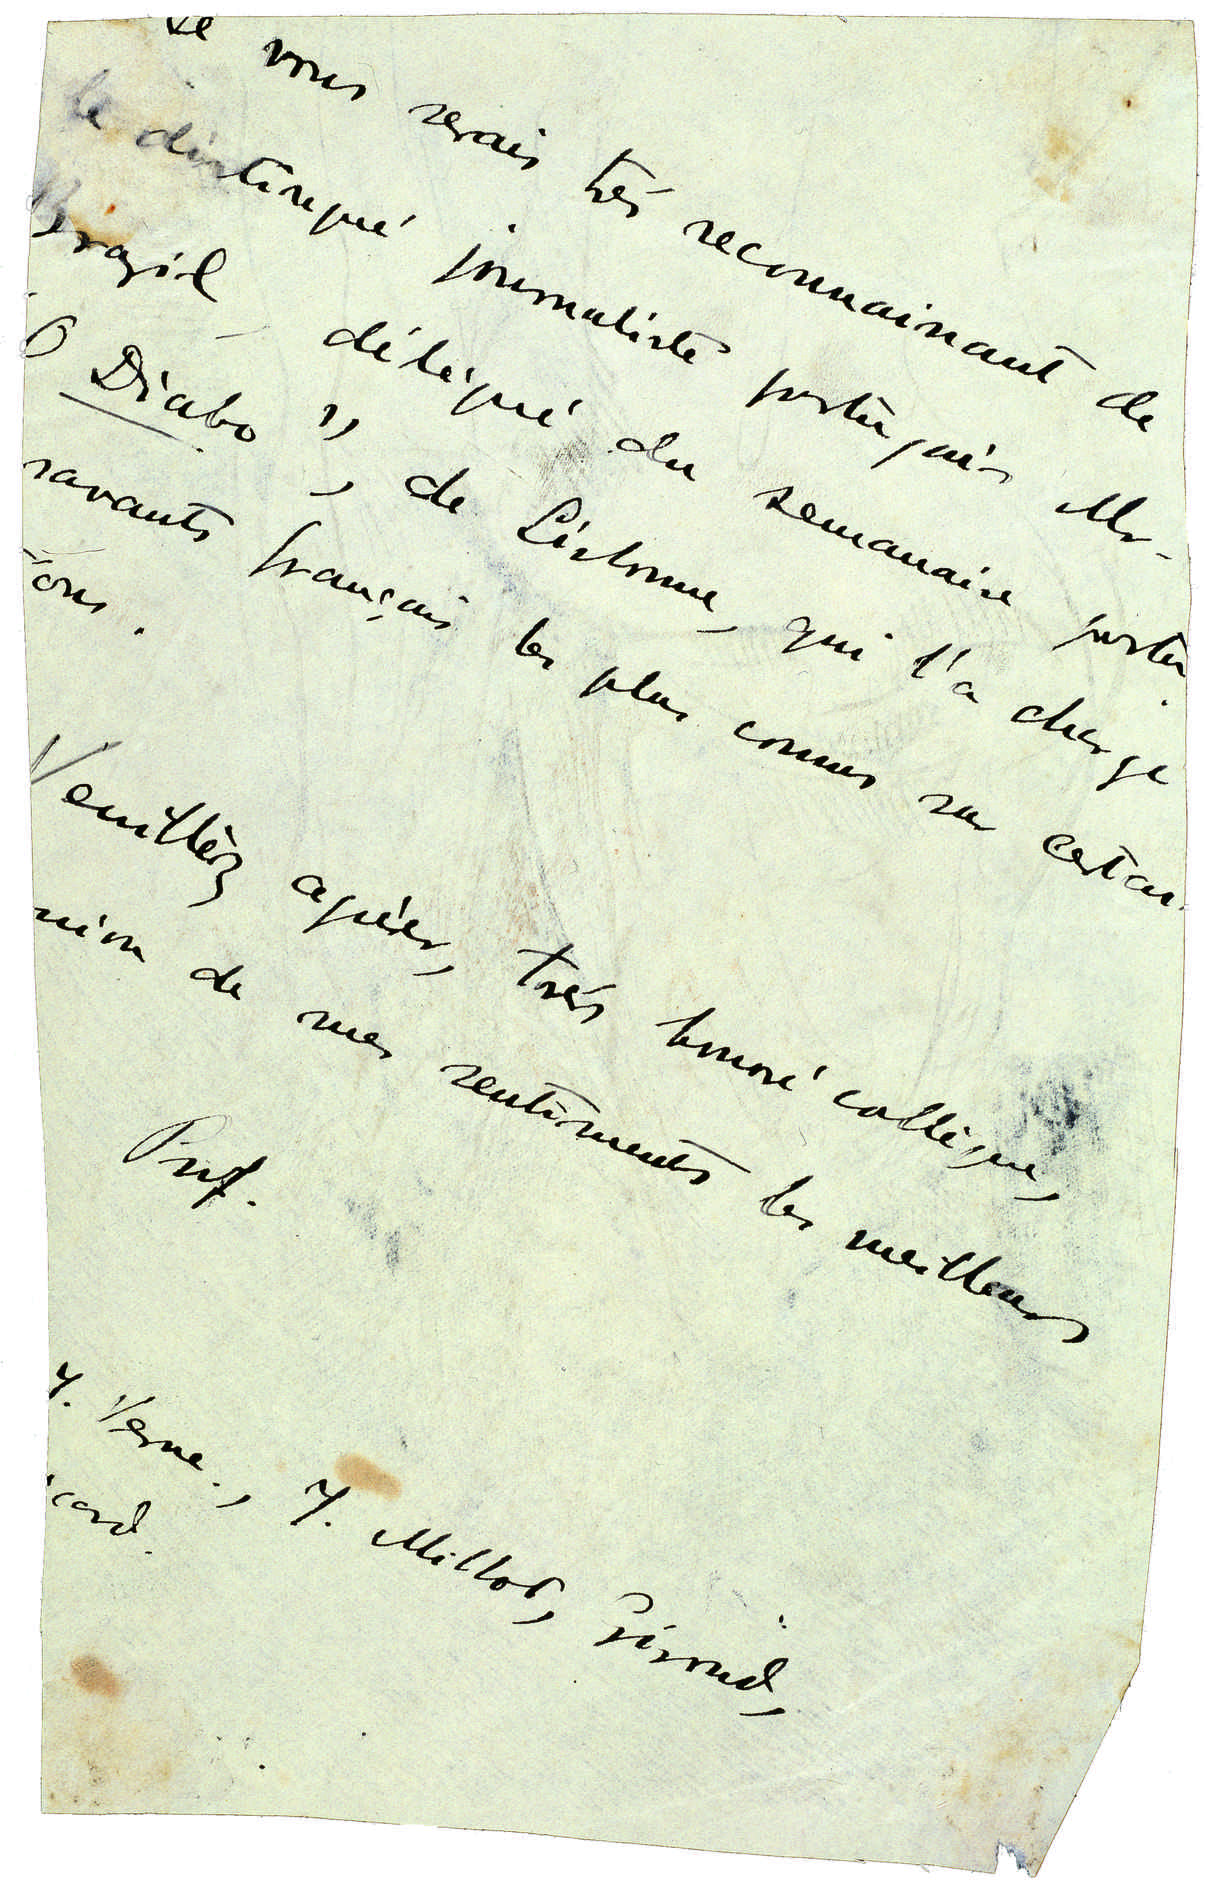 Je vous serais très reconnaissant de
le distingué journaliste portugais Mr.
Brazil, délégué du semanaire portu
O Diabo", de Lisbonne, qui l'a chargé
savants français les plus connus sur certai
ions.
Veuillez agréer, très honoré collègue,
sion de mes sentiments les meilleurs
Prof.
J. Verne., J. Millot, Giroud,
icard.